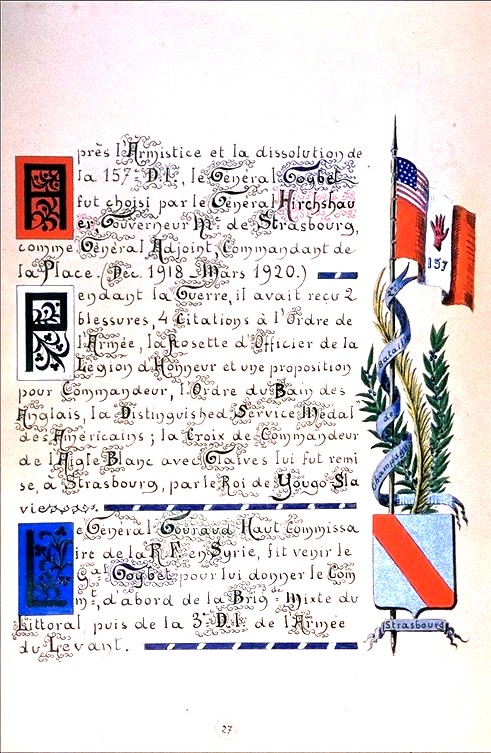 Après l'Armistice et la dissolution de
la 157e D.I., le Général Goybet
fut choisi par le Général Hirchshau
er Gouverneur Mre de Strasbourg,
comme Général Adjoint, Commandant de
la Place. (Déc. 1918 - Mars 1920.)
Pendant la Guerre, il avait reçu 2
blessures, 4 Citations à l'Ordre de
l'Armée, la Rosette d'Officier de la
Légion d'Honneur et une proposition
pour Commandeur, l'Ordre du Bain des
Anglais, la Distinguished Service Medal
des Américains ; la Croix de Commandeur
de l'Aigle Blanc avec Glaives lui fut remi
se, à Strasbourg, par le Roi de Yougo Sla
vie
Le Général Gouraud Haut Commissa
ire de la R.F. en Syrie, fit venir le
Gal Goybet pour lui donner le Com
mt, d'abord de la Brigde Mixte du
Littoral, puis de la 3e D.I. de l'Armée
du Levant.
157
Bataille
de
Champagne
Strasbourg
27